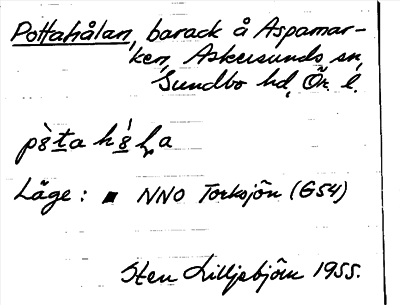 Pottahålan, barack å Aspamar-
ken, Askersunds sn,
Sundbo hd, Ör. l.
Läge: ▪ NNO Torksjön (G54)
Sten Lilljebjörn 1955.